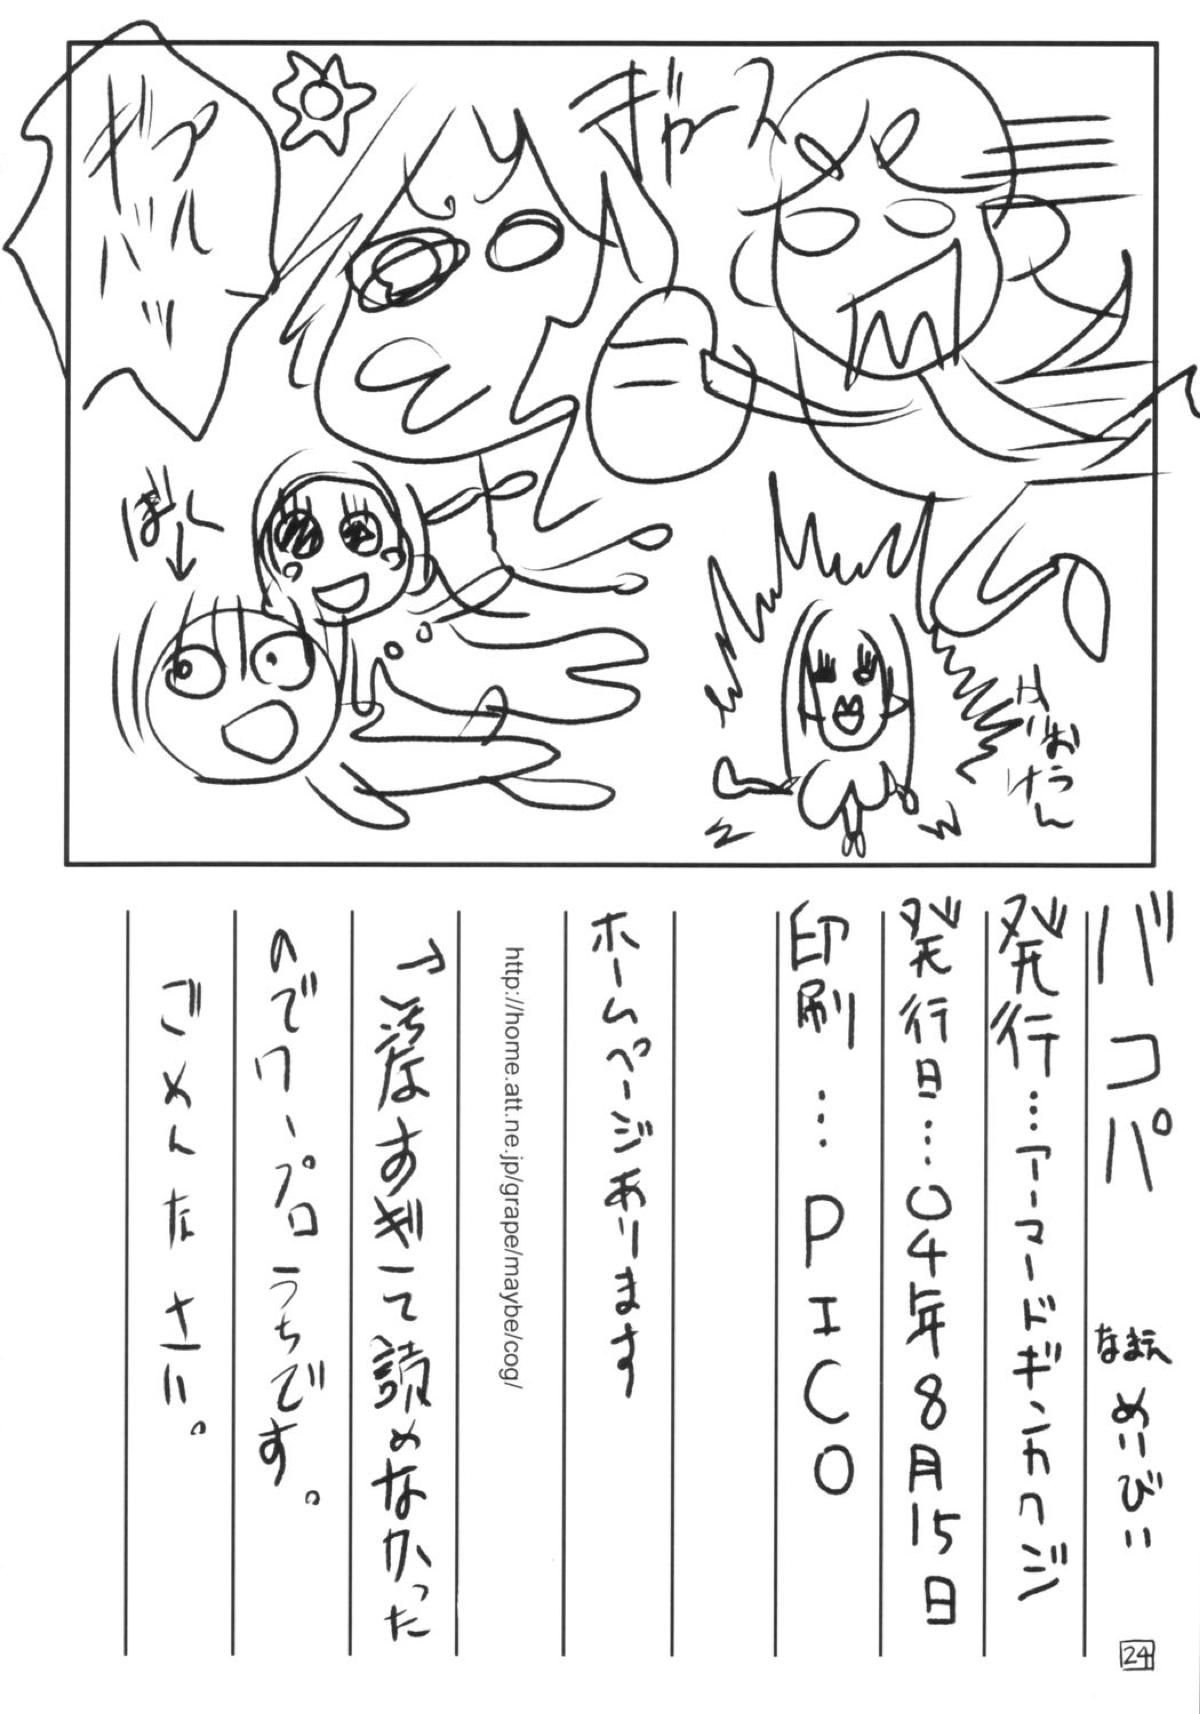 ぎゃーす
ギャ
バル
ッ
ぼく
かいおうけん
バコパ
なまえ めいびい
発行…アーマードギンカクジ
発行日…04年8月15日
印刷…PICO
ホームページあります
http://home.att.ne.jp/grape/maybe/cog/
↑汚なすぎて読めなかった
のでワープロうちです。
ごめんなさい。
24